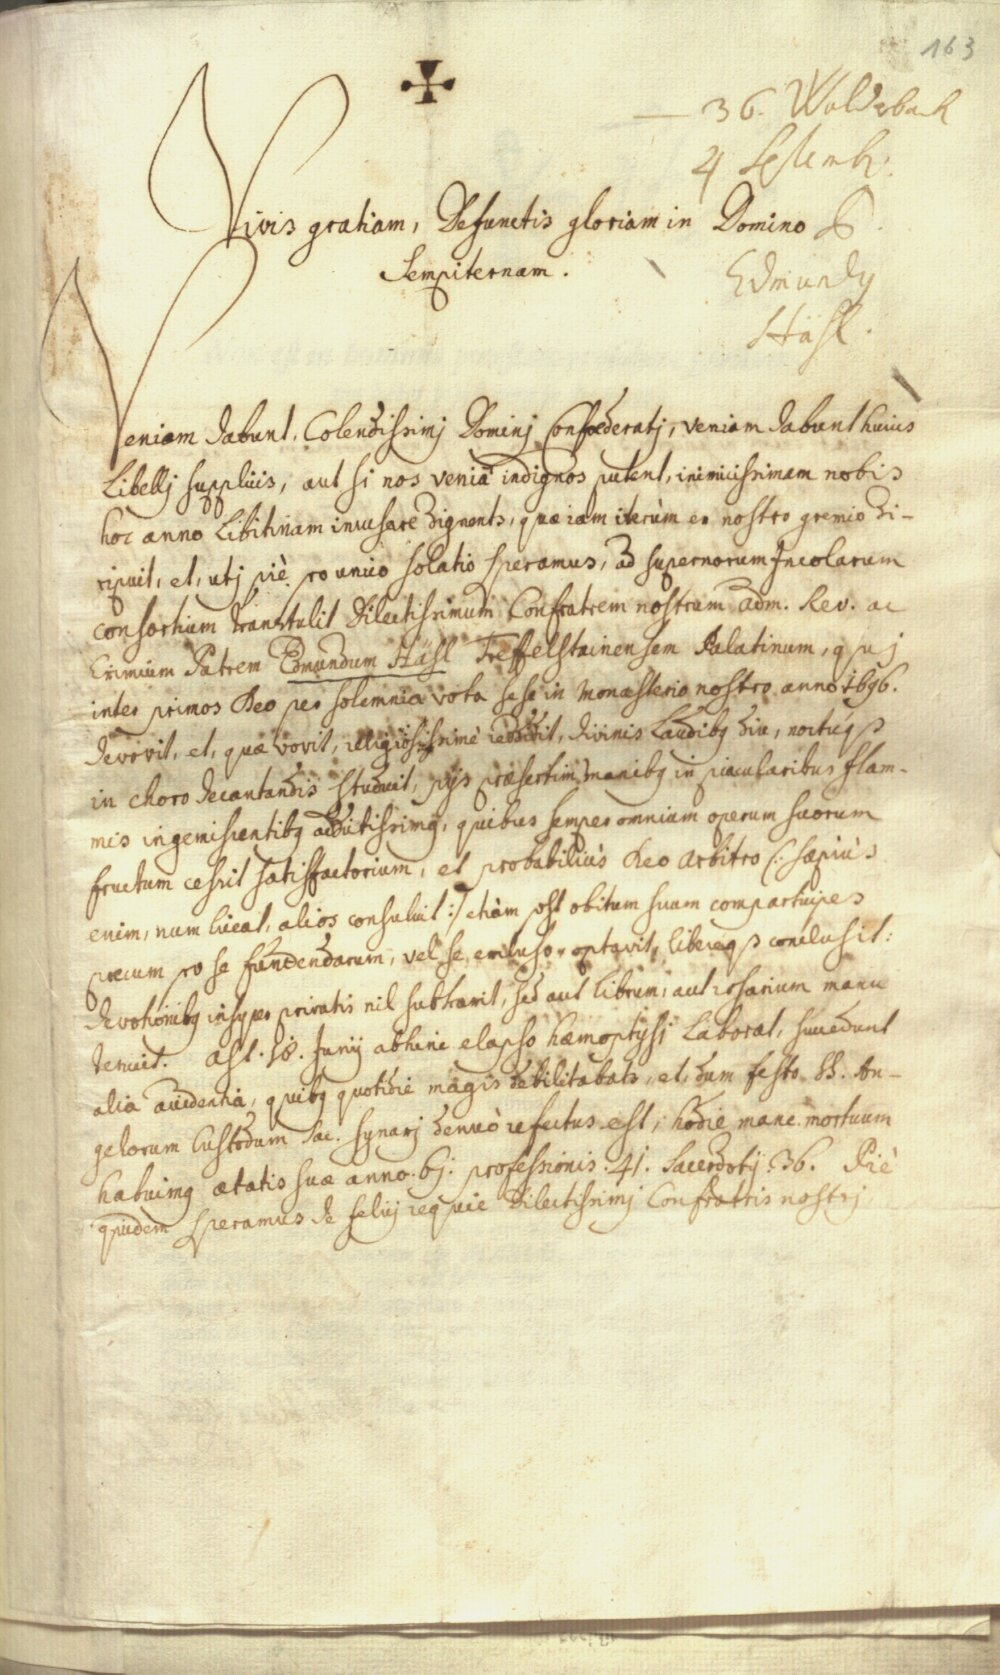 163
36. Walderbach
4 Septembr:
Vivis gratiam, Defunctis gloriam in Domino P.
Sempiternam.
Edmundq
Häsl.
Veniam dabunt, Colendissimj Dominj Confoederatj, veniam dabunt huius
Libellj supplicis, aut si nos veniâ indignos putent, inimicissimam nobis
hoc anno Libitinam incusare dignentr, quae iam iterùm ex nostro gremio di-
ripuit, et, utj piè pro unico solatio speramus, ad supernorum Incolarum
consortium transtulit Dilectissimum Confratrem nostrum adm. Rev. ac
Eximium Patrem Edmundum Häsl Treffelstainensem Palatinum, quj
inter primos Deo per solemnia vota sese in Monasterio nostro anno 1696.
devovit, et, quae vovit, religiosissimè reddidit, divinis Laudibq diu, noctuqs
in choro decantandis studuit, pijs praesertim manibq in piacularibus flam-
mis ingemiscentibq addictissimq, quibus semper omnium operum suorum
fructum cessit satisfactorium, et probabiliùs Deo Arbitro /: saepiùs
enim, num liceat, alios consuluit :/ etiàm post obitum suum comparticipes
precum pro se fundendarum, vel se excluso, optavit, libereqs conclusit:
devotionibq insuper privatis nil subtraxit, sed aut librum, aut rosarium manu
tenuit. Ast. 18. Junij abhinc elapso haemoptysi Laborat, succedunt
alia accidentia, quibq quotidie magis debilitabatr, et, dum festo SS. An-
gelorum Custodum Sac. Synaxj denuò refectus est, hodie mane mortuum
habuimq aetatis suae anno. 61. professionis. 41. Sacerdotij. 36. Piè
quidem speramus de felicj requie Dilectissimj Confratris nostrj